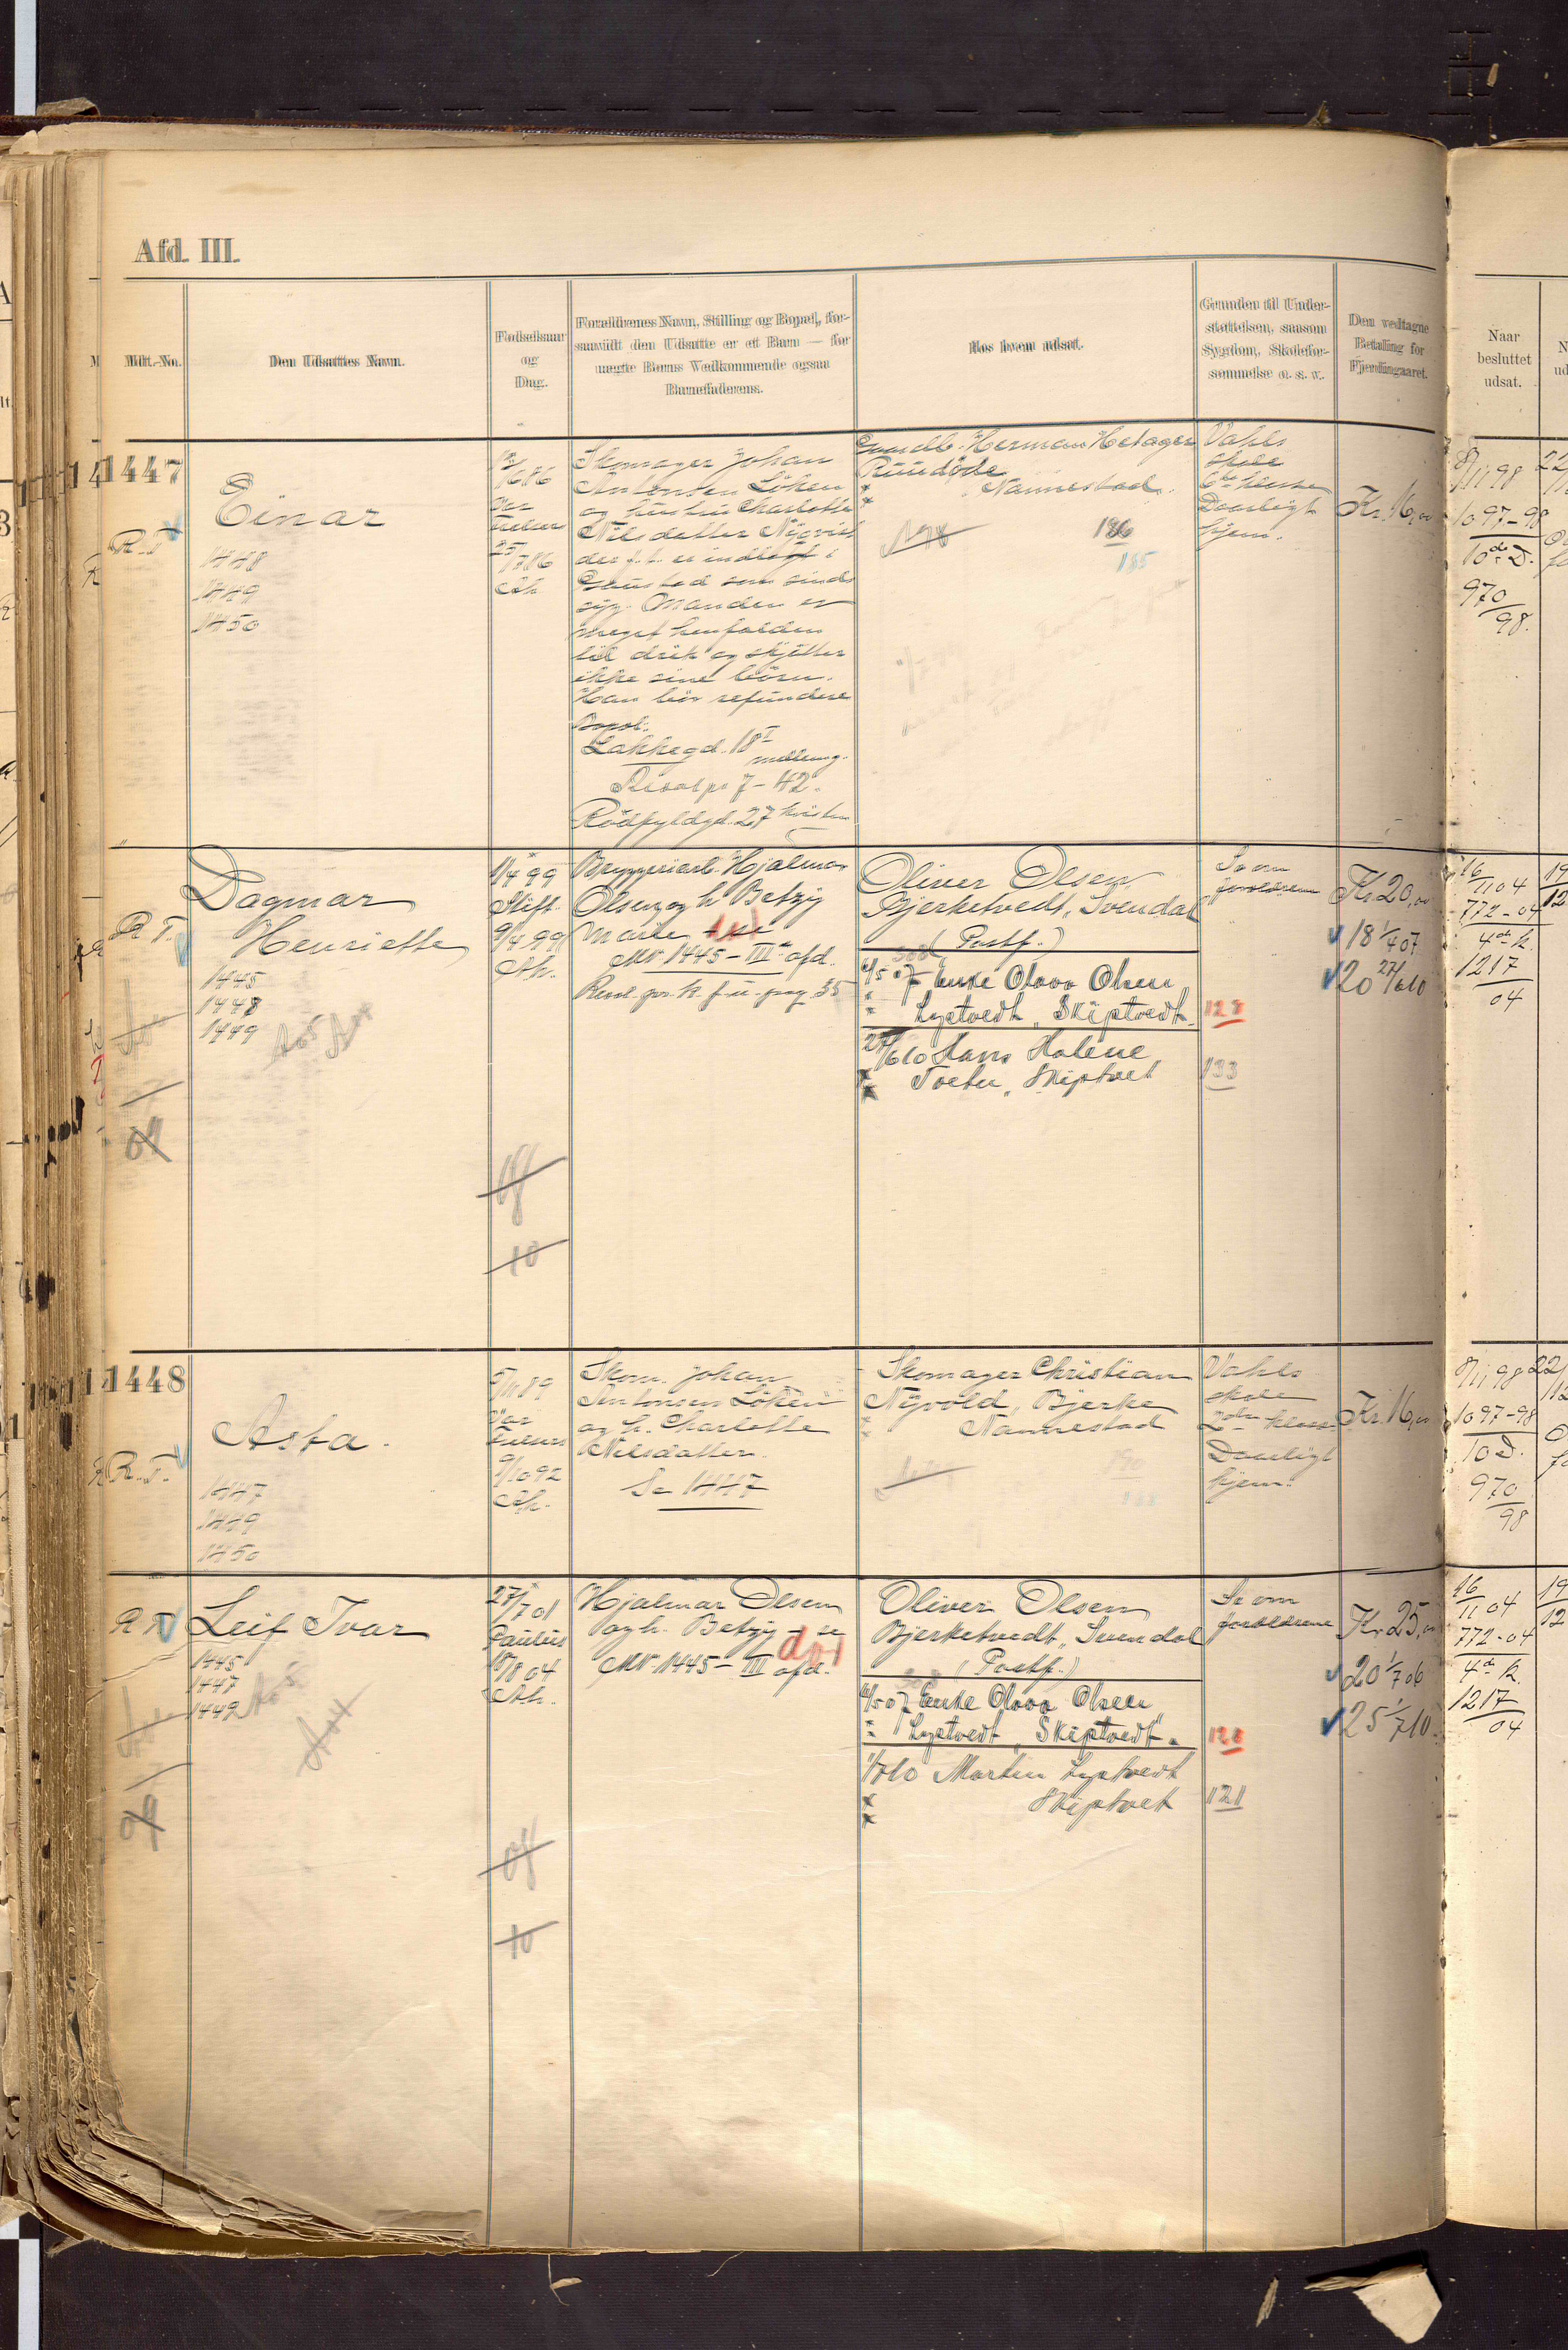 Afd. III.
Mdt.-No.
Den Udsattes Navn.
Fødselsaar
og
Dag.
Forældrenes Navn, Stilling og Bopæl, for-
saavidt den Udsatte er et Barn — for
uægte Børns Vedkommende ogsaa
Barnefaderens.
Hos hvem udsat.
Grunden til Under-
støttelsen, saasom
Sygdom, Skolefor-
sømmelse o. s. v.
Den vedtagne
Betaling for
Fjerdingaaret.
Naar
besluttet
udsat.
1447
R.T.
Einar
1448
1449
1450
Vor
Frelsers
25/7 86
Ak.
Skomager Johan
Antonsen Löken
og hustru Charlotte
Nilsdatter
der f. t. er indlagt i
Gaustad som sinds
syg. Manden er
meget henfalden
til drik og skjøtter
ikke sine børn.
Han bör refundere
Lakkegd. 18 I
mellemg.
7 - 42.
Rödfyldgd. 27 kvisten
Herman
Nannestad.
186
185
Vahls
skole
6te klasse
Daarligt
hjem.
Kr. 16,00
8/11 98
1097-98
10de D.
970/98.
R T.
Dagmar
Henriette
1445
1448
1449
1/4 99
Stift.
9/4 99
Ak.
Bryggeriarb. Hjalmar
Olsen og h. Betzy
Marie se
MN 1445 - III afd.
Oliver Olsen
Bjerketvedt, Svendal
(Postf.)
4/5 07 Enke Olava Olsen
" Lyptvedt, Skiptvedt
128
27/6 10 Hans Halene
Tveter, Skiptvet
133
Se om
forældrene
Kr. 20,00
18 1/4 07
20 27/6 10
16/11 04
772-04
4de k.
1217
04
1448
R.T.
Asta.
1447
1449
1450
5/11 89
Vor
Frelsers
9/10 92
Ak.
Skom. Johan
Antonsen Löken
og h. Charlotte
Nilsdatter.
Se 1447
Skomager Christian
Nyvold, Bjerke
Nannestad
Vahls
skole
2den klasse
Daarligt
hjem.
Kr. 16,00
8/11 98
1097-98
10 D.
970
98
R T
Leif Ivar
1445
1447
1449
27/7 01
Paulus
Ak.
Hjalmar Olsen
og h. Betzy - se
MN 1445 - III afd.
Oliver Olsen
Bjerketvedt, Svendal
(Postf.)
4/5 07 Enke Olava Olsen
" Lyptvedt, Skiptvedt.
128
1/7 10 Martin Lyptvedt
Skiptvet
121
Se om
forældrene
Kr. 25,00
20 1/7 06
25 1/7 10
16/11 04
772-04
4de k.
1217
04